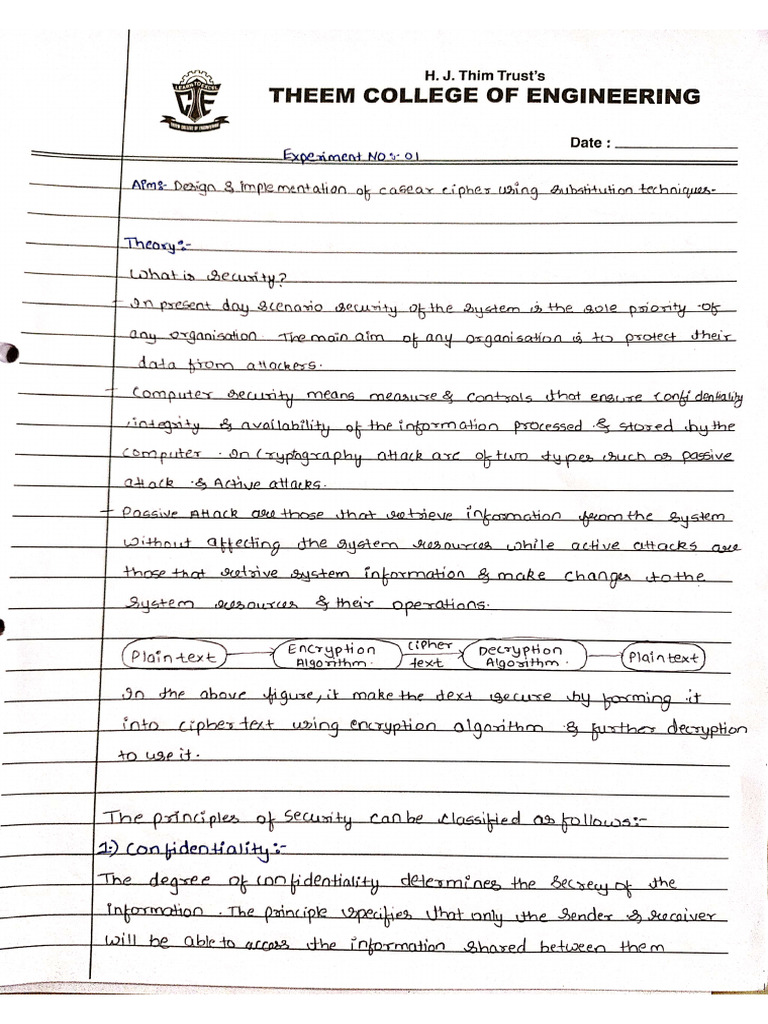 H. J. Thim Trust's
THEEM COLLEGE OF ENGINEERING
LEARN TO EXCEL
TCE
THEEM COLLEGE OF ENGINEERING
Date :
Experiment NO :- 01
Aim:- Design & Implementation of casear cipher using substitution techniques-
Theory:-
What is security?
- In present day scenario security of the system is the sole priority of
any organisation. The main aim of any organisation is to protect their
data from attackers.
- Computer security means measure & controls that ensure confidentiality
, integrity & availability of the information processed & stored by the
computer. In Cryptography attack are of two types such as passive
attack & Active attacks.
- Passive Attack are those that retrieve information from the system
without affecting the system resources while active attacks are
those that retrive system information & make changes to the
system resources & their operations.
Plain text Encryption Algorithm. cipher text Decryption Algorithm. Plain text
In the above figure, it make the text secure by forming it
into cipher text using encryption algorithm & further decryption
to use it.
The principles of security can be classified as follows:-
1:) Confidentiality:-
The degree of confidentiality determines the secrecy of the
information. The principle specifies that only the sender & receiver
will be able to access the information shared between them